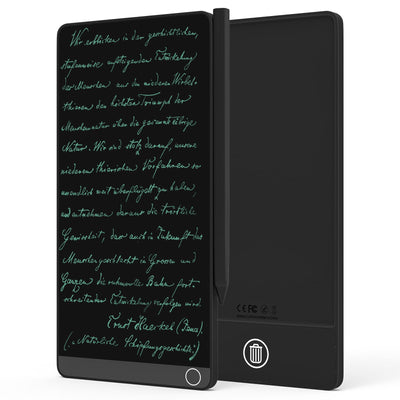 Wir erblicken in der geschichtlichen,
stufenweise aufsteigenden Entwickelung
der Menschen aus den niederen Wirbel-
thieren den höchsten Triumph der
Menschennatur über die gesammte übrige
Natur. Wir sind stolz darauf, unsere
niederen thierischen Vorfahren so
unendlich weit überflügelt zu haben,
und entnehmen daraus die tröstliche
Gewissheit, dass auch in Zukunft das
Menschengeschlecht im Grossen und
Ganzen die ruhmvolle Bahn fort-
schreitender Entwickelung verfolgen wird.
Ernst Haeckel (Jena).
(„Natürliche Schöpfungsgeschichte")
CE FC